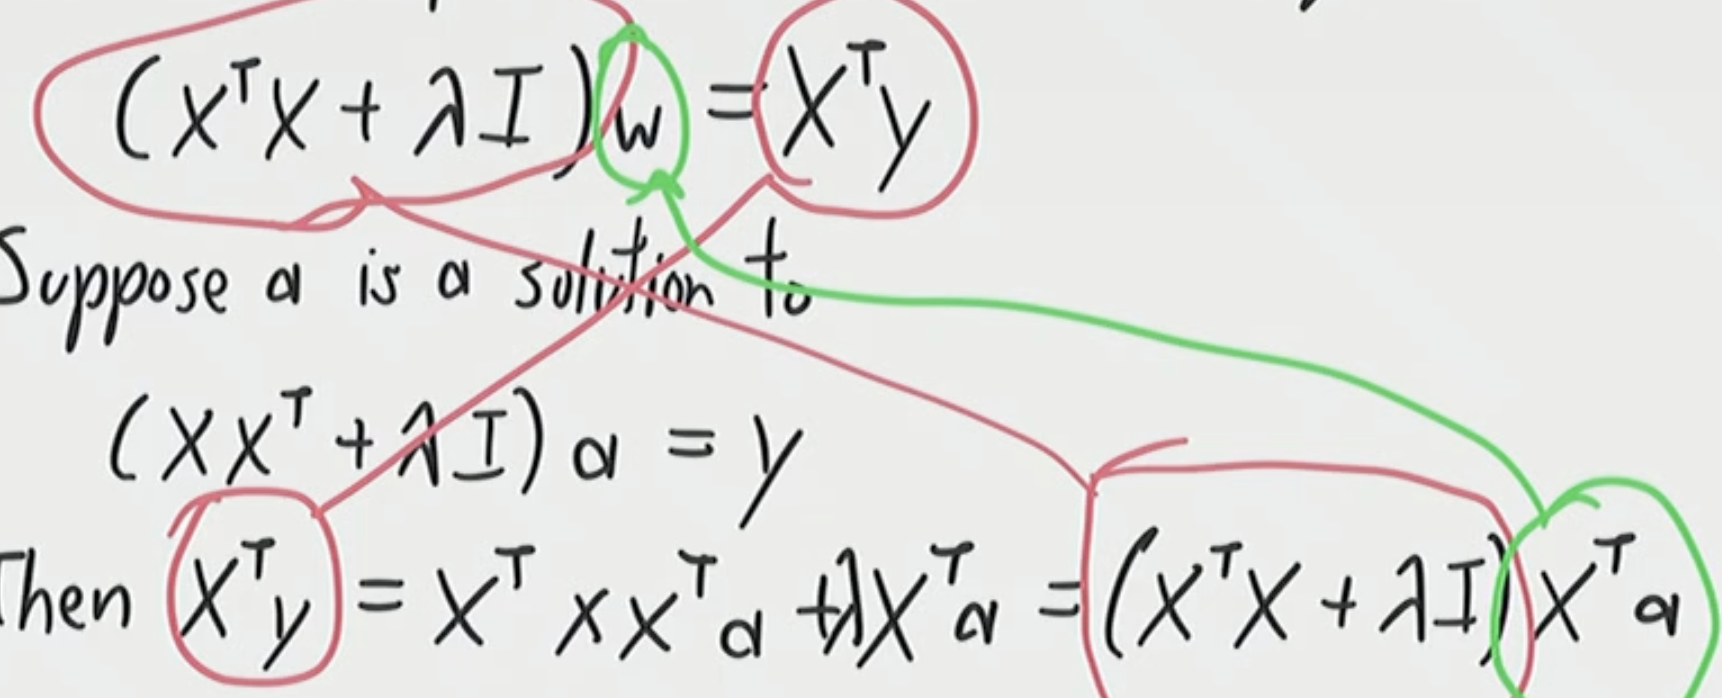 (XᵀX + λI)w = Xᵀy
Suppose a is a solution to
(XXᵀ + λI)a = y
Then Xᵀy = XᵀXXᵀa + λXᵀa = (XᵀX + λI)Xᵀa